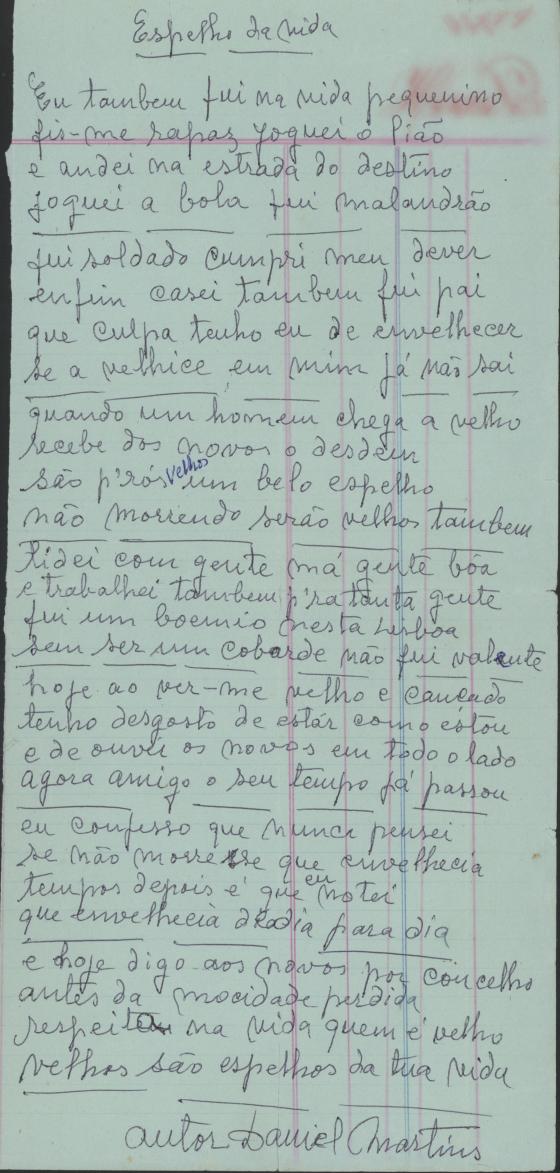 Espelho da vida
Eu tambem fui na vida pequenino
fis-me rapaz joguei o Pião
e andei na estrada do destino
joguei a bola fui malandrão
fui soldado cumpri meu dever
enfim casei tambem fui pai
que culpa tenho eu de envelhecer
se a velhice em mim já não sai
quando um homem chega a velho
recebe dos novos o desdem
são p'rós velhos um belo espelho
não morrendo serão velhos tambem
lidei com gente má gente bôa
e trabalhei tambem p'ra tanta gente
fui um boemio nesta Lisboa
sem ser um cobarde não fui valente
hoje ao ver-me velho e cançado
tenho desgosto de estár como estou
e de ouvir os novos em todo o lado
agora amigo o seu tempo já passou
eu confesso que nunca pensei
se não morresse que envelhecia
tempos depois é que eu notei
que envelhecia dia para dia
e hoje digo aos novos por concelho
antes da mocidade perdida
respeita na vida quem é velho
velhos são espelhos da tua vida
autor Daniel Martins